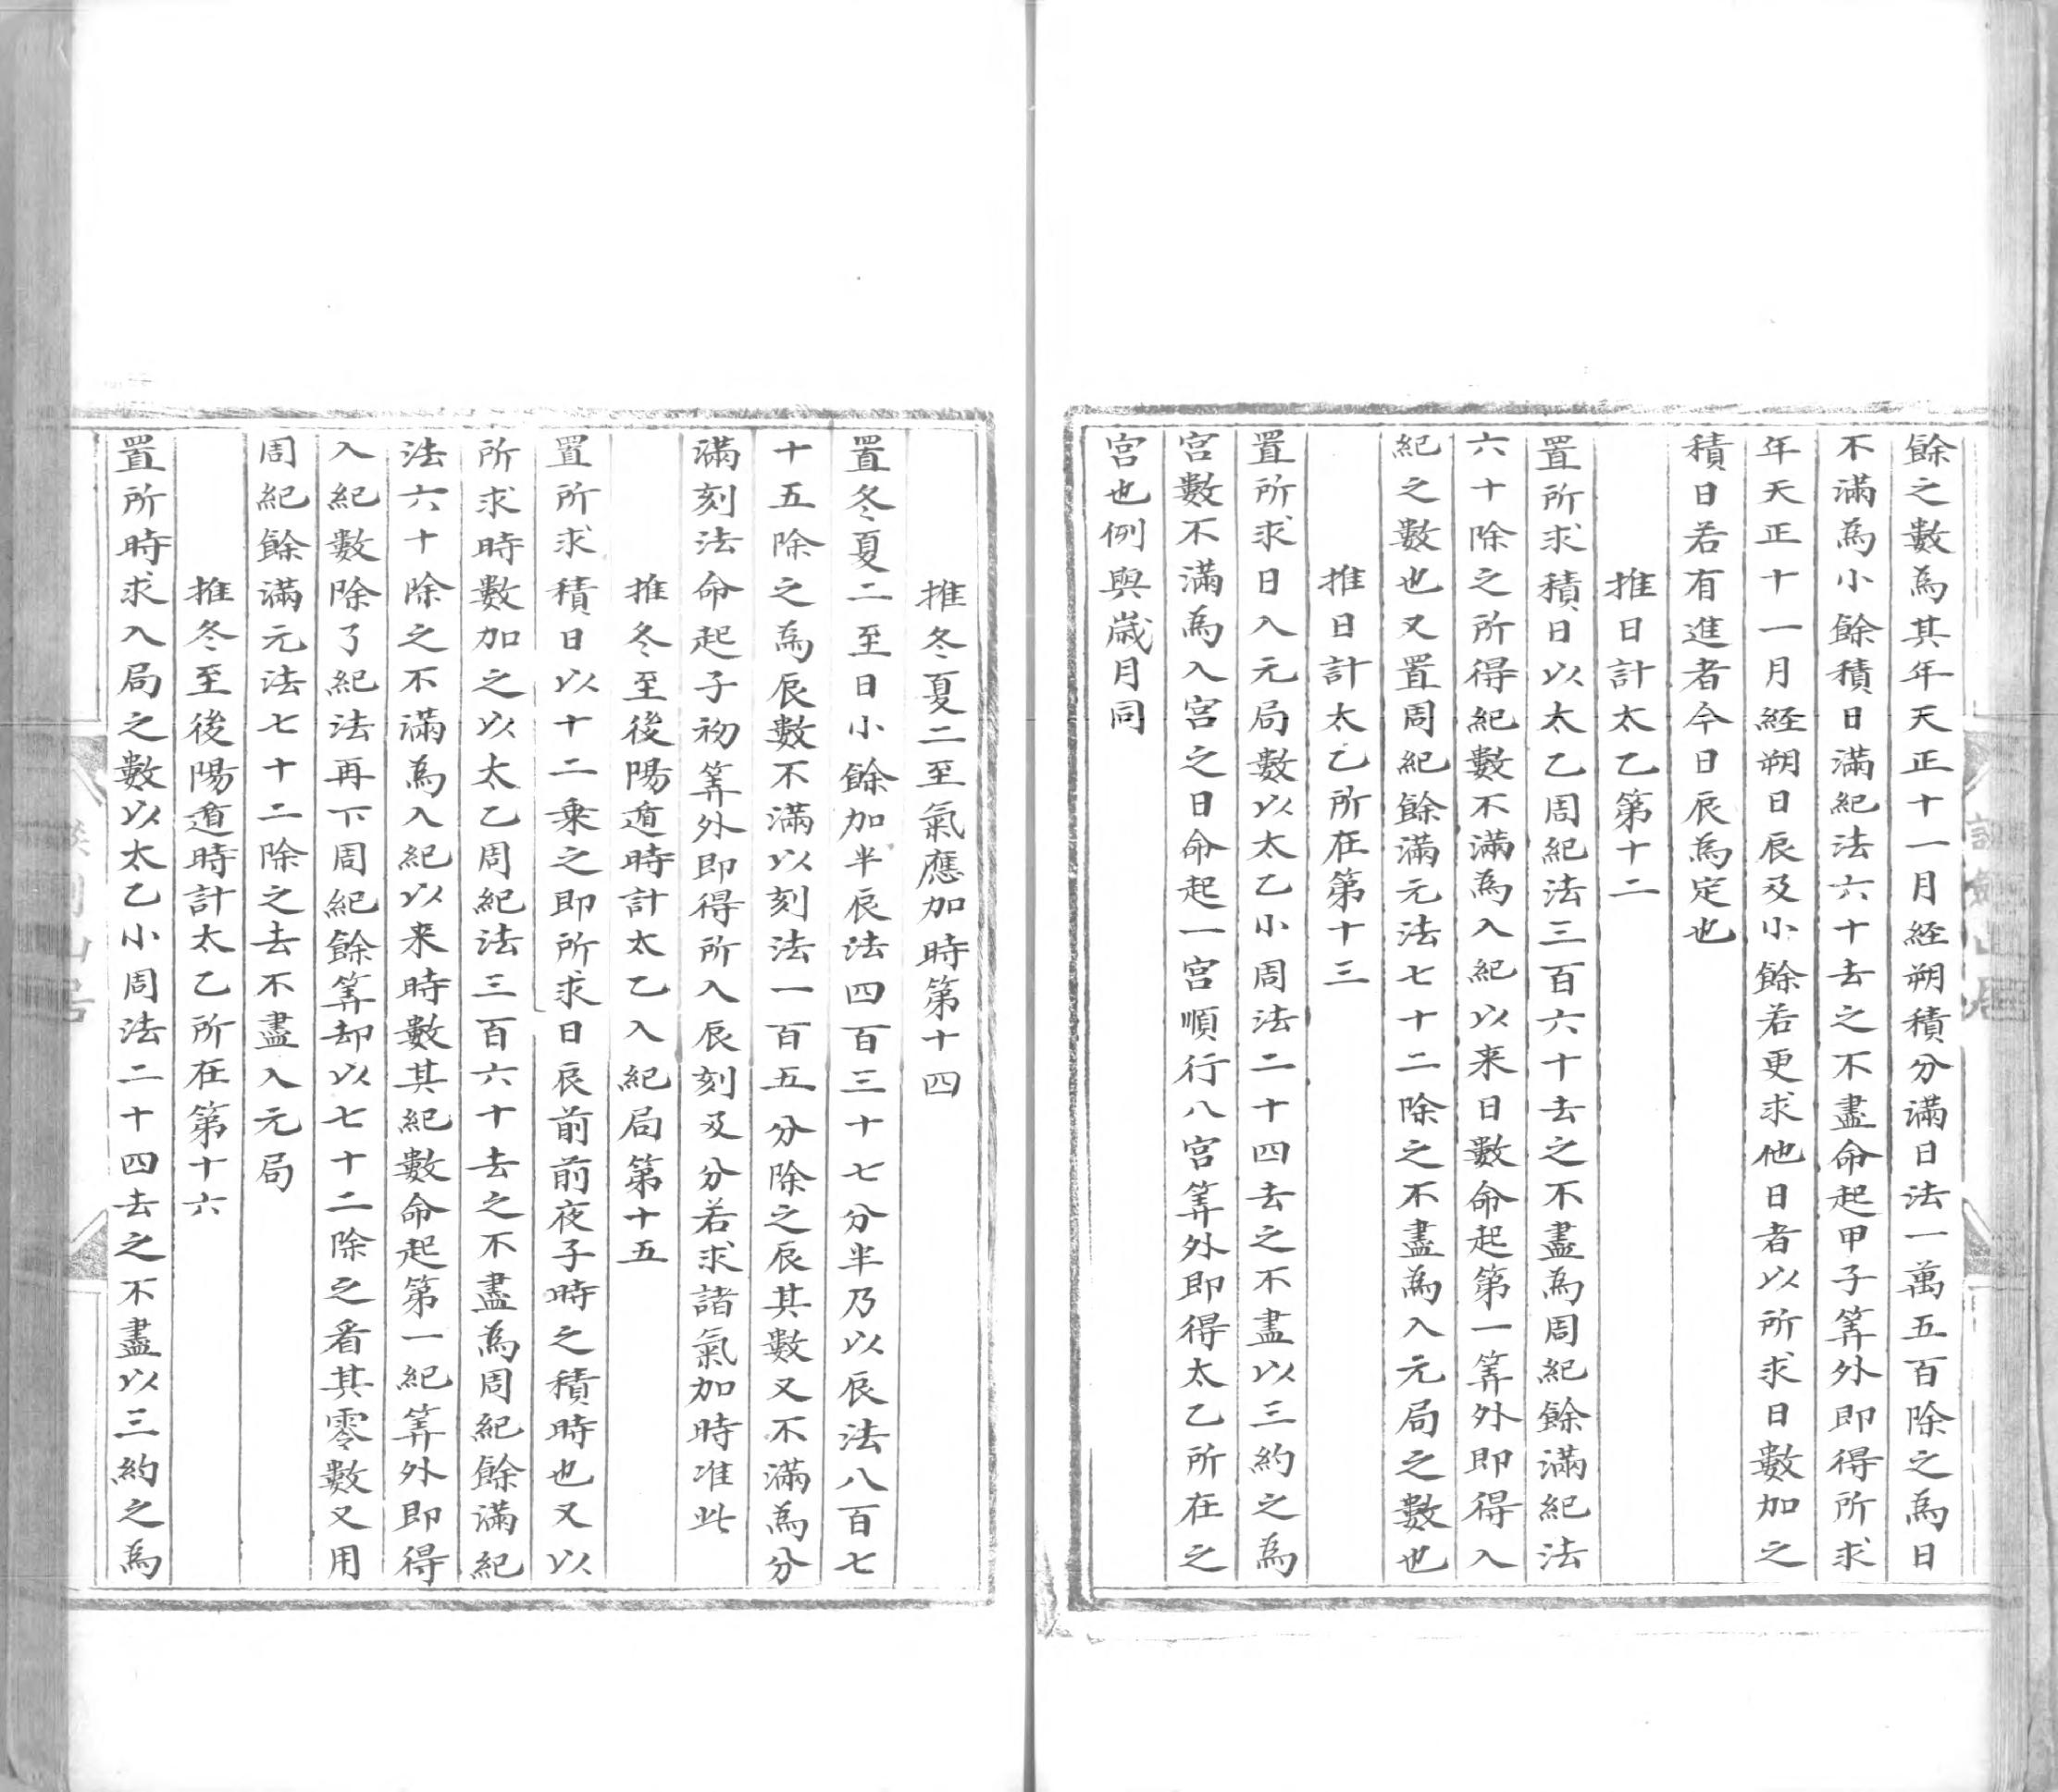 餘之數爲其年天正十一月経朔積分滿日法一萬五百除之爲日
不滿爲小餘積日滿紀法六十去之不盡命起甲子筭外即得所求
年天正十一月経朔日辰及小餘若更求他日者以所求日數加之
積日若有進者今日辰爲定也
推日計太乙第十二
置所求積日以太乙周紀法三百六十去之不盡爲周紀餘滿紀法
六十除之所得紀數不滿爲入紀以来日數命起第一筭外即得入
紀之數也又置周紀餘滿元法七十二除之不盡爲入元局之數也
推日計太乙所在第十三
置所求日入元局數以太乙小周法二十四去之不盡以三約之爲
宮數不滿爲入宮之日命起一宮順行八宮筭外即得太乙所在之
宮也例與歳月同
推冬夏二至氣應加時第十四
置冬夏二至日小餘加半辰法四百三十七分半乃以辰法八百七
十五除之爲辰數不滿以刻法一百五分除之辰其數又不滿爲分
滿刻法命起子初筭外即得所入辰刻及分若求諸氣加時准此
推冬至後陽遁時計太乙入紀局第十五
置所求積日以十二乗之即所求日辰前前夜子時之積時也又以
所求時數加之以太乙周紀法三百六十去之不盡爲周紀餘滿紀
法六十除之不滿爲入紀以来時數其紀數命起第一紀筭外即得
入紀數除了紀法再下周紀餘筭却以七十二除之看其零數又用
周紀餘滿元法七十二除之去不盡入元局
推冬至後陽遁時計太乙所在第十六
置所時求入局之數以太乙小周法二十四去之不盡以三約之爲